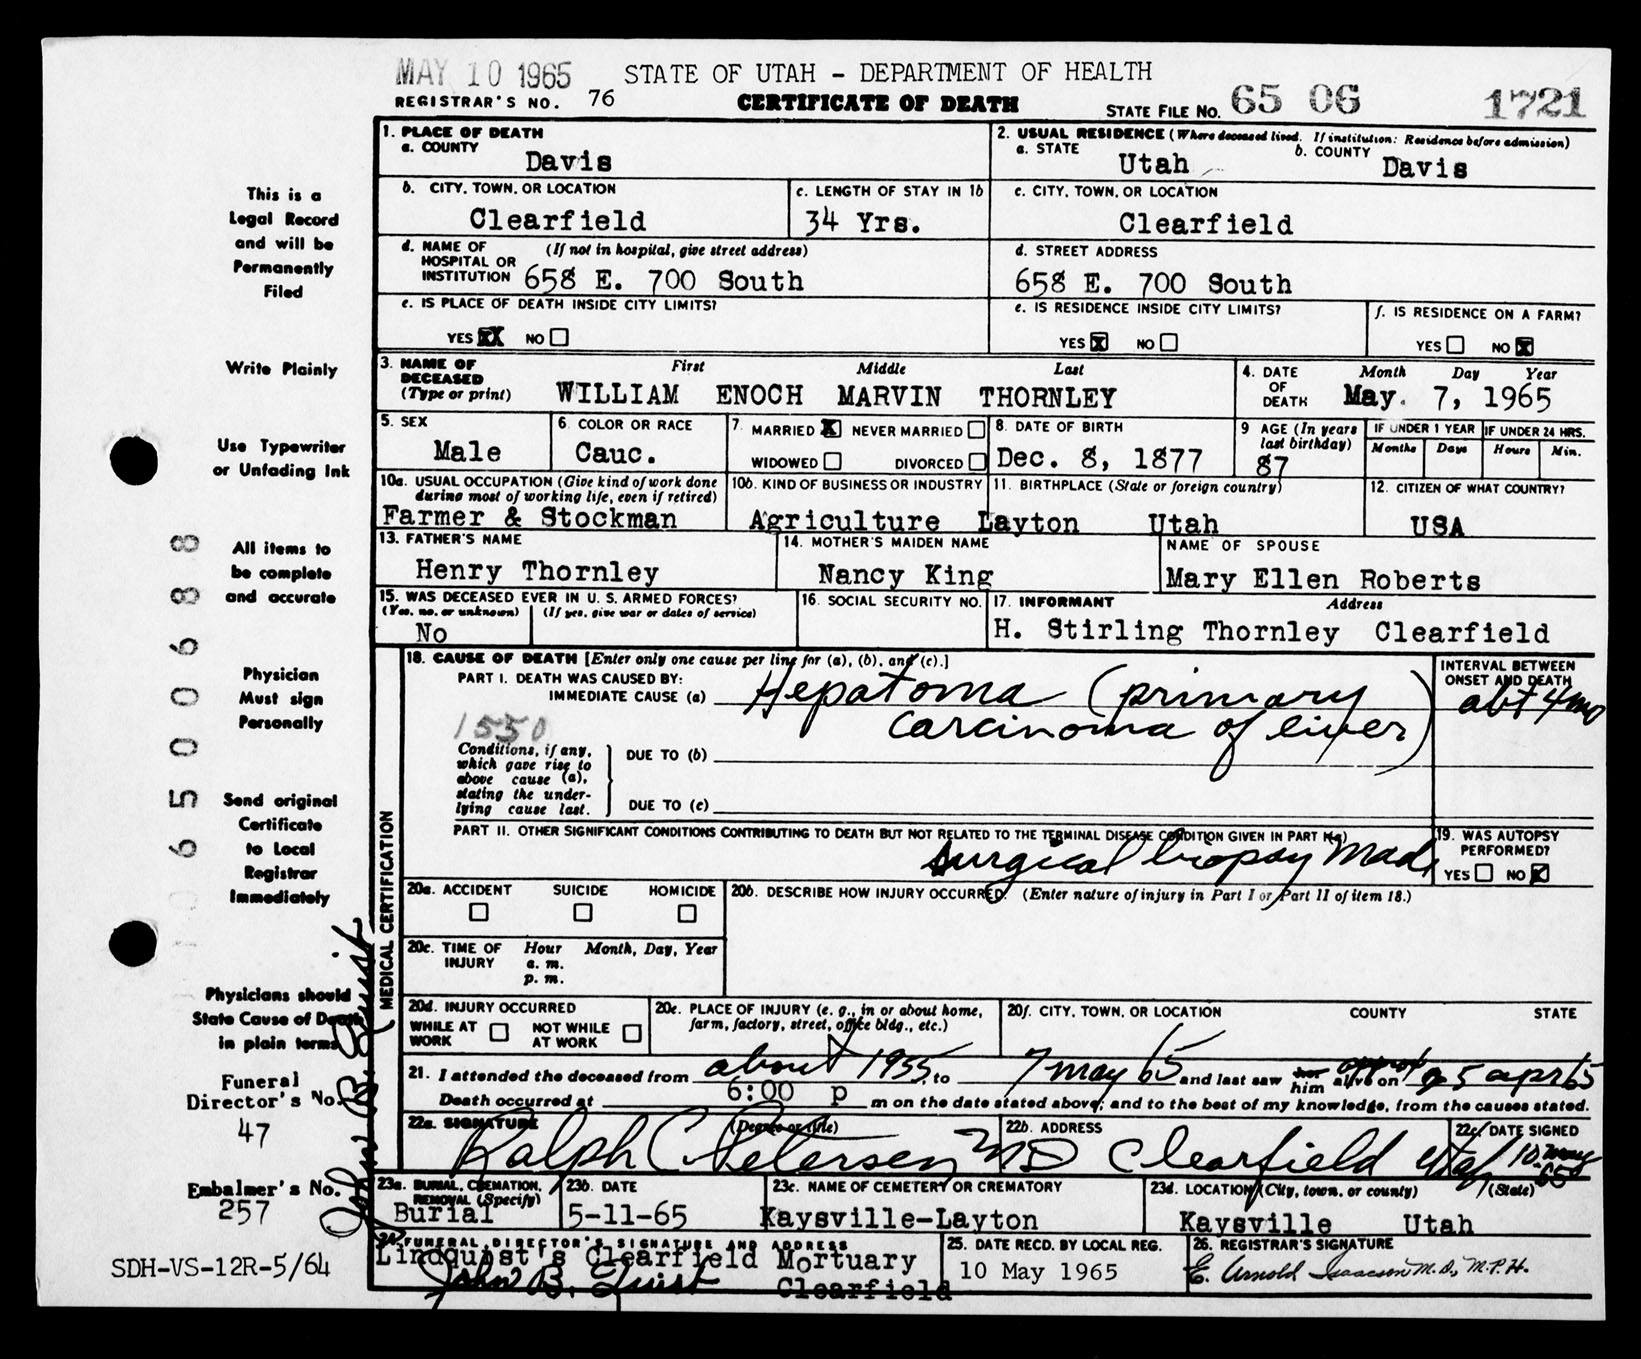 MAY 10 1965 STATE OF UTAH - DEPARTMENT OF HEALTH
REGISTRAR'S NO. 76 CERTIFICATE OF DEATH STATE FILE NO. 65 06 1721
This is a
Legal Record
and will be
Permanently
Filed
Write Plainly
Use Typewriter
or Unfading Ink
All items to
be complete
and accurate
Physician
Must sign
Personally
Send original
Certificate
to Local
Registrar
Immediately
Physicians should
State Cause of Death
in plain terms
Funeral
Director's No.
47
Embalmer's No.
257
SDH-VS-12R-5/64
65006888
John B. Quist
1. PLACE OF DEATH
a. COUNTY
Davis
2. USUAL RESIDENCE (Where deceased lived. If institution: Residence before admission)
a. STATE Utah b. COUNTY Davis
b. CITY, TOWN, OR LOCATION
Clearfield
c. LENGTH OF STAY IN 1b
34 Yrs.
c. CITY, TOWN, OR LOCATION
Clearfield
d. NAME OF HOSPITAL OR INSTITUTION (If not in hospital, give street address)
658 E. 700 South
d. STREET ADDRESS
658 E. 700 South
e. IS PLACE OF DEATH INSIDE CITY LIMITS?
YES XX NO
e. IS RESIDENCE INSIDE CITY LIMITS?
YES X NO
f. IS RESIDENCE ON A FARM?
YES NO X
3. NAME OF DECEASED (Type or print) First Middle Last
WILLIAM ENOCH MARVIN THORNLEY
4. DATE OF DEATH Month Day Year
May. 7, 1965
5. SEX
Male
6. COLOR OR RACE
Cauc.
7. MARRIED X NEVER MARRIED
WIDOWED DIVORCED
8. DATE OF BIRTH
Dec. 8, 1877
9 AGE (In years last birthday)
87
IF UNDER 1 YEAR IF UNDER 24 HRS.
Months Days Hours Min.
10a. USUAL OCCUPATION (Give kind of work done during most of working life, even if retired)
Farmer & Stockman
10b. KIND OF BUSINESS OR INDUSTRY
Agriculture
11. BIRTHPLACE (State or foreign country)
Layton Utah
12. CITIZEN OF WHAT COUNTRY?
USA
13. FATHER'S NAME
Henry Thornley
14. MOTHER'S MAIDEN NAME
Nancy King
NAME OF SPOUSE
Mary Ellen Roberts
15. WAS DECEASED EVER IN U. S. ARMED FORCES?
(Yes, no, or unknown) (If yes, give war or dates of service)
No
16. SOCIAL SECURITY NO.
17. INFORMANT Address
H. Stirling Thornley Clearfield
MEDICAL CERTIFICATION
18. CAUSE OF DEATH [Enter only one cause per line for (a), (b), and (c).]
PART I. DEATH WAS CAUSED BY:
IMMEDIATE CAUSE (a) Hepatoma (primary
carcinoma of liver)
INTERVAL BETWEEN ONSET AND DEATH
abt 4 mo
1550
Conditions, if any, which gave rise to above cause (a), stating the underlying cause last.
DUE TO (b)
DUE TO (c)
PART II. OTHER SIGNIFICANT CONDITIONS CONTRIBUTING TO DEATH BUT NOT RELATED TO THE TERMINAL DISEASE CONDITION GIVEN IN PART I(a)
surgical biopsy made
19. WAS AUTOPSY PERFORMED?
YES NO
20a. ACCIDENT SUICIDE HOMICIDE
20b. DESCRIBE HOW INJURY OCCURRED. (Enter nature of injury in Part I or Part II of item 18.)
20c. TIME OF INJURY Hour Month, Day, Year
a. m.
p. m.
20d. INJURY OCCURRED
WHILE AT WORK NOT WHILE AT WORK
20e. PLACE OF INJURY (e. g., in or about home, farm, factory, street, office bldg., etc.)
20f. CITY, TOWN, OR LOCATION COUNTY STATE
21. I attended the deceased from about 1955, to 7 may 65 and last saw her him alive on 5 apr 65
Death occurred at 6:00 p m on the date stated above; and to the best of my knowledge, from the causes stated.
22a. SIGNATURE (Degree or title)
Ralph C Petersen MD
22b. ADDRESS
Clearfield Utah
22c. DATE SIGNED
10 may 65
23a. BURIAL, CREMATION, REMOVAL (Specify)
Burial
23b. DATE
5-11-65
23c. NAME OF CEMETERY OR CREMATORY
Kaysville-Layton
23d. LOCATION (City, town, or county) (State)
Kaysville Utah
24. FUNERAL DIRECTOR'S SIGNATURE AND ADDRESS
Lindquist's Clearfield Mortuary
John B. Quist Clearfield
25. DATE RECD. BY LOCAL REG.
10 May 1965
26. REGISTRAR'S SIGNATURE
E. Arnold Isaacson M.D., M.P.H.